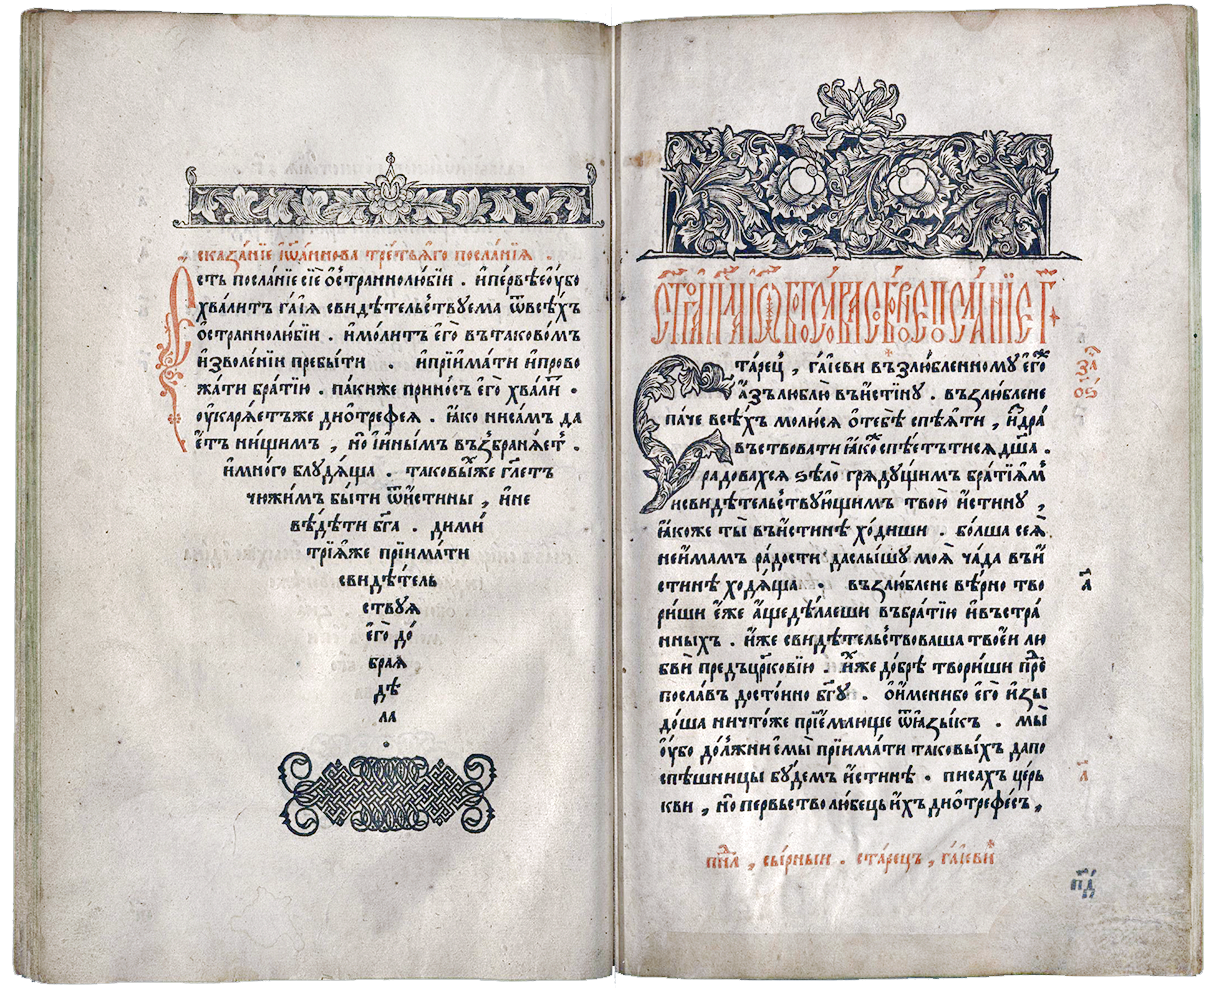 сказа́нїе їѡ́а́ннова тре́тьѧго посла́нїѧ .
Есть посла́нїе сїѐ ѻ҆страннолю́бїи . и҆пе́рвѣеоу҆бо
хва́литъ га́їѧ свидѣ́тельствуема ѿвсѣ́хъ
ѻ҆страннолю́бїи . и҆мо́литъ є҆го̀ въ таково́мъ
и҆зволе́нїи пребы́ти . и҆прїи҆ма́ти и҆прово
жа́ти бра́тїю . па́киже прино́съ є҆го̀ хва́ли .
оу҆карѧ́етъже дио҆трефеѧ . ꙗ҆́ко ниса́мъ да
є҆́тъ ни́щимъ , но̀ и҆ и҆ны́мъ въꙁбранѧ́етъ .
и҆мно́го блудѧ́ща . таковы́ѧже гл҃етъ
чюжи́мъ бы́ти ѿи҆́стины , и҆не
вѣ́дѣти бг҃а . дими́
трїѧ́же прїима́ти
свидѣ́тель
ствуѧ
є҆го̀ до́
браѧ
дѣ
ла
ст҃го а҆пⷭ҇ла і҆ѡ҆а́нна бг҃осло́ва собо́рное посла́нїе г҃
Ста́рецъ , га́їеви въꙁлю́бленному є҆го́же
а҆́ꙁълюблю̀ въи҆́стину . въꙁлю́блене
па́че всѣ́хъ молю́сѧ ѻ҆тебѣ̀ спѣ́ѧти , и҆здра́
въствовати ꙗ҆́коже спѣ́етътисѧ дш҃а .
ꙁа҃
оѕ҃
радовахсѧ ѕѣлѡ̀ грѧду́щимъ бра́тїѧмъ
исвидѣ́тельствую҆щимъ твою̀ и҆́стину ,
ꙗ҆́коже ты̀ въи҆́стинѣ хо́диши . бо́лша сеѧ̀
неи҆́мамъ ра́дости даслы́шу моѧ̀ ча́да въи҆́
стинѣ ходѧ́ща . въꙁлю́блене вѣ́рно тво
а҃
ри́ши є҆́же а҆́щедѣ́лаеши въбра́тїю и҆въстра́
нныхъ . и҆́же свидѣ́тельствоваша твое́и лю
бви́ предъцр҃ковїю . и҆́хже до́брѣ твори́ши пре
посла́въ досто́ино бг҃у . ѻ҆и҆́менибо є҆го̀ и҆ꙁы
до́ша ничто́же прїе́млюще ѿꙗ҆ꙁы́къ . мы̀
оу҆́бо до́лжниє҆смы̀ прїима́ти таковы́хъ дапо
спѣ́шницы бу́демъ и҆́стинѣ . писа́хъ це́рь
л҃
кви , но̀ первьстволю́бецьи҆́хъ дио҆трефе́съ ,
пнⷣ҇л , сы́рныи . ста́рецъ , га́їеви
пд҃